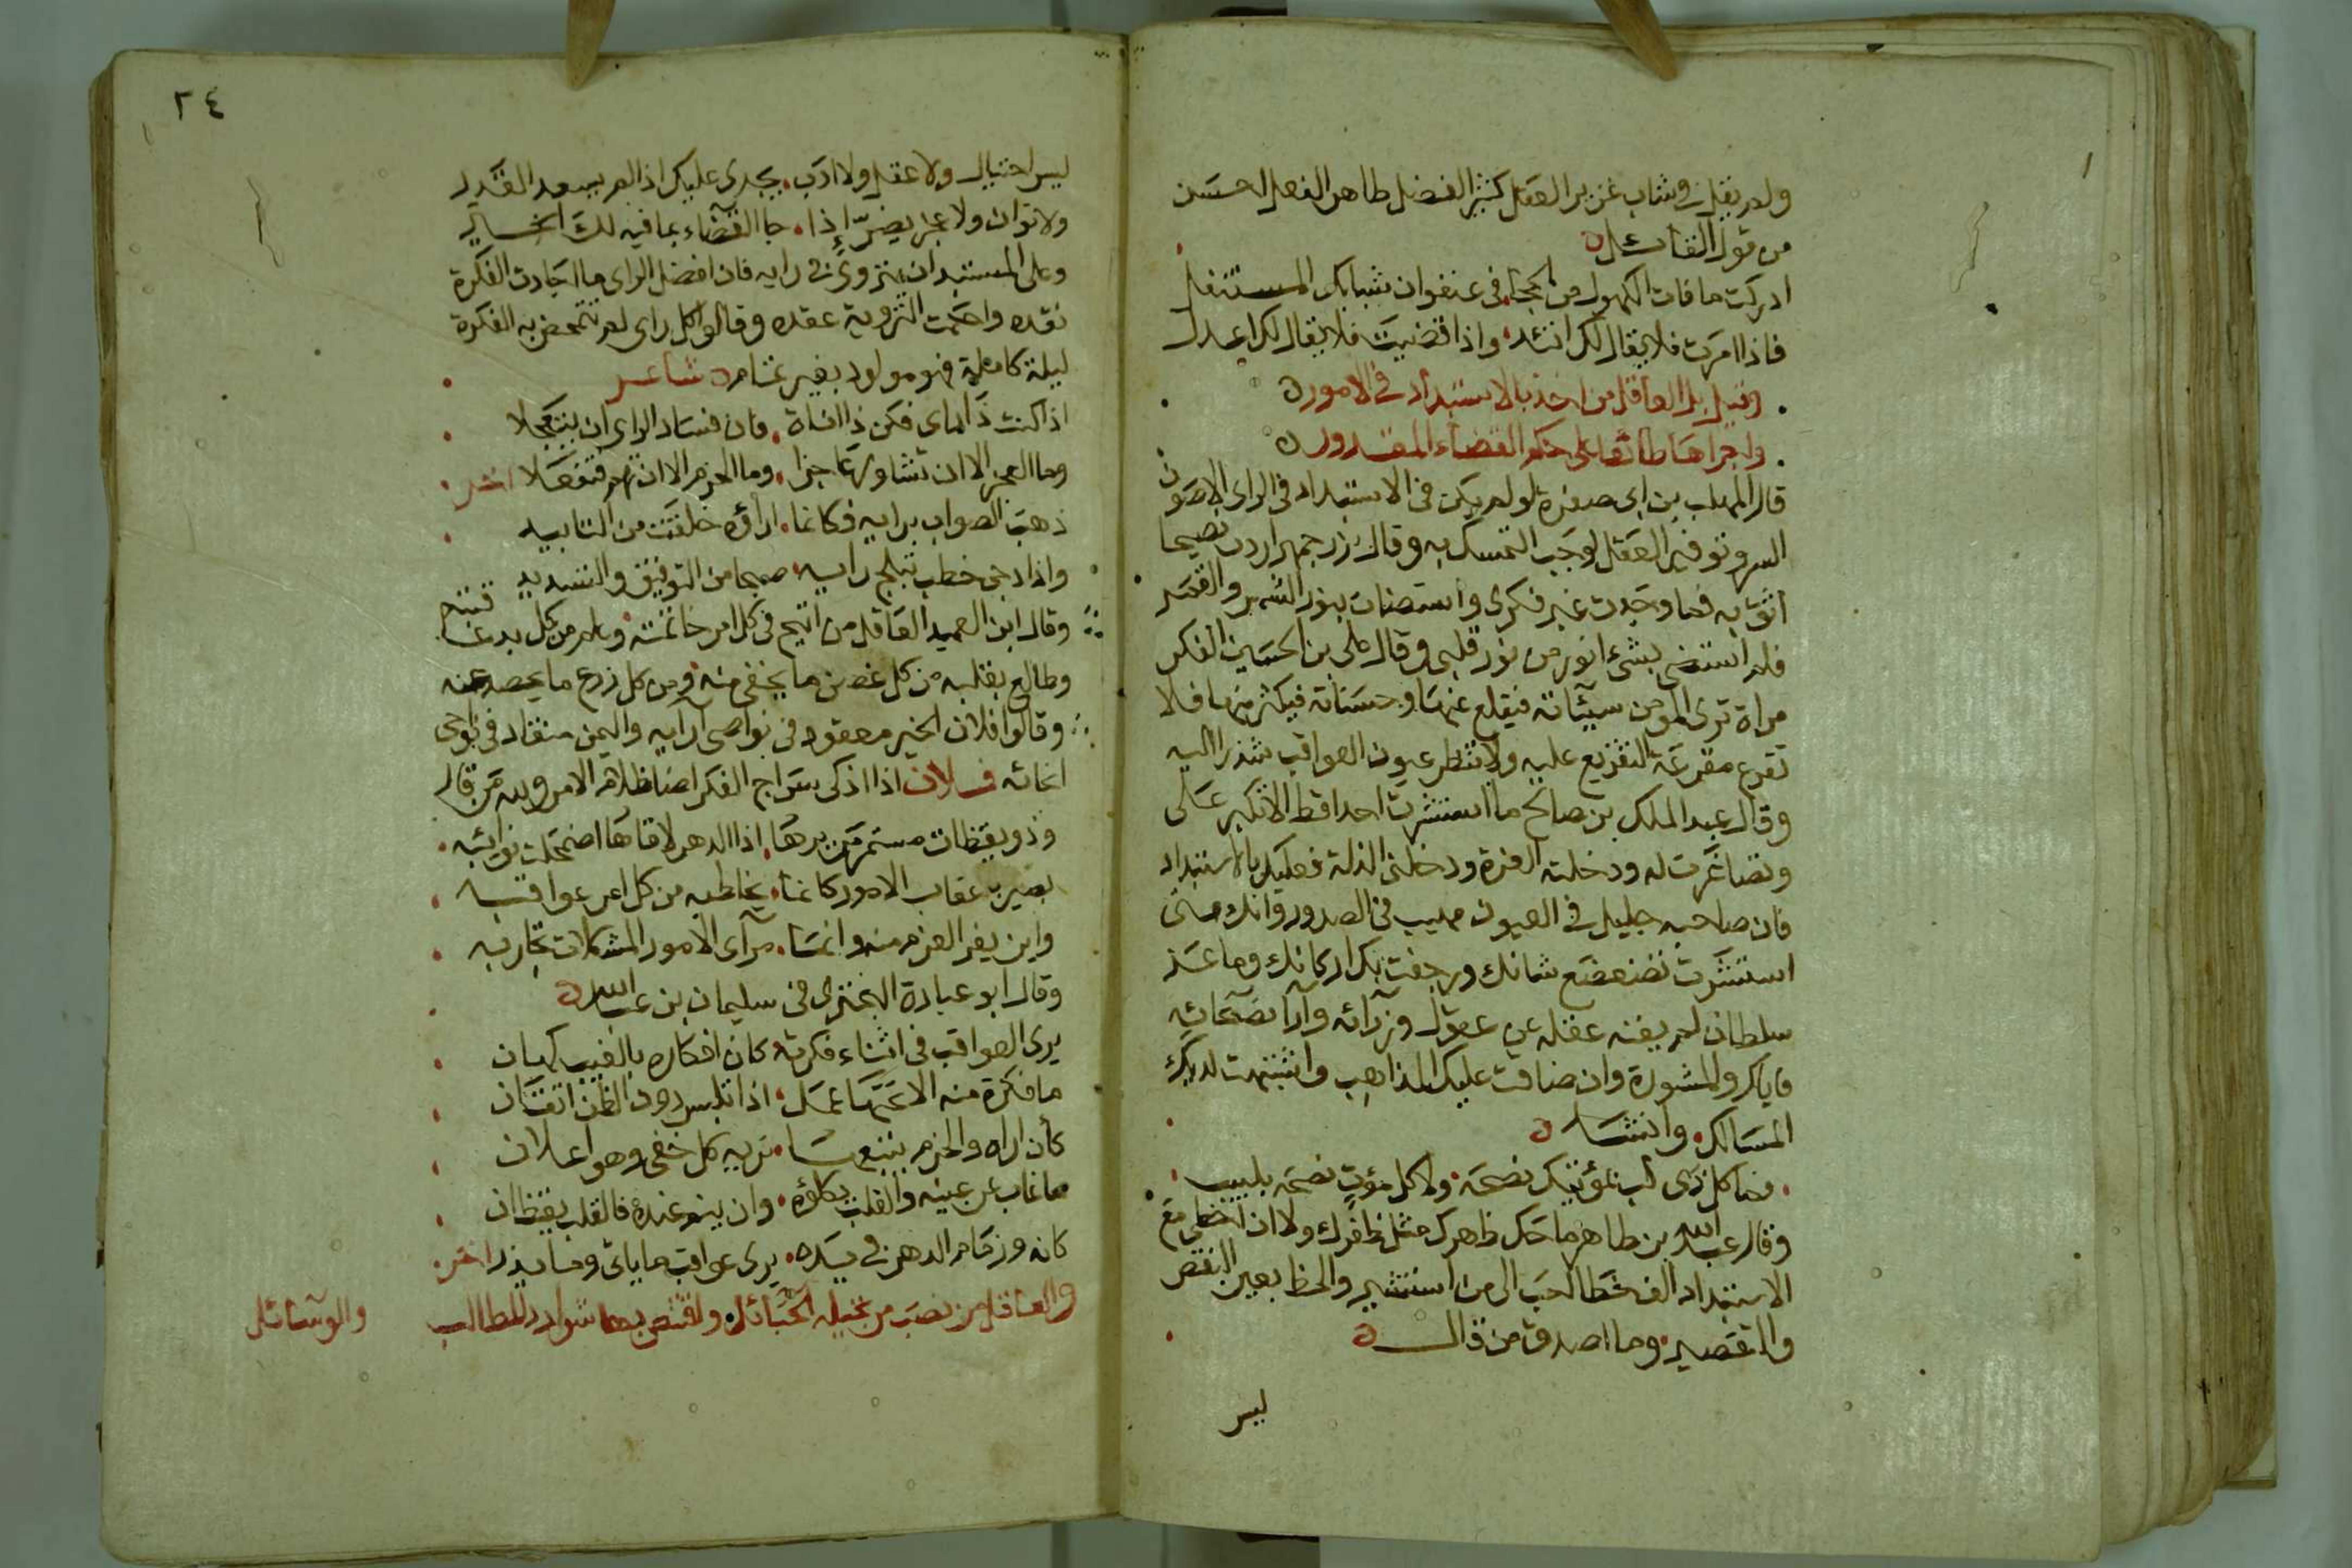 ولم يقل في شاب غزير العقل كثير الفضل طاهر الفعل احسن
من قول القائل
ادركت ما فات الكهول من الحجا في عنفوان شبابك المستقبل
فاذا امرت فلا يقال لك اتئد واذا قضيت فلا يقال لك اعدل
وقيل بل العاقل من اخذ بالاستبداد في الامور
واجراها طائعا على حكم القضاء المقدور
قال المهلب بن ابي صفرة لو لم يكن في الاستبداد في الراى الا صون
السر وتوفير العقل لوجب التمسك به وقال بزرجمهر اردت نصيحا
اثق به فما وجدت غير فكرى واستضات بنور الشمس والقمر
فلم استضى بشىء انور من نور قلبى وقال على بن الحسين الفكر
مراة ترى المومن سيئاته فيقلع عنها وحسناته فيكثر منها فلا
تقرع مقرعة التقريع عليه ولا تنظر عيون العواقب شذرا اليه
وقال عبد الملك بن صالح ما استشرت احدا قط الا تكبر على
وتصاغرت له ودخلته العزة ودخلتنى الذلة فعليك بالاستبداد
فان صاحبه جليل في العيون مهيب في الصدور وانك متى
استشرت تضعضع شانك ورجفت بك اركانك وما عز
سلطان لم يغنه عقله عن عقول وزرائه وآرا نصحائه
فاياك والمشورة وان ضاقت عليك المذاهب واشتبهت لديك
المسالك وانشد
فما كل ذى لب بمؤتيك نصحه ولا كل مؤت نصحه بلبيب
وقال عبد الله بن طاهر ما حك ظهرك مثل ظفرك ولا ان اخطى مع
الاستبداد الف خطا احب الى من ان استشير والحظ بعين النقص
والتقصير وما اصدق من قال
ليس
٢٤
ليس احتيال ولا عقل ولا ادب يجدى عليك اذا لم يسعد القدر
ولا توان ولا عجز يضر إذا جا القضاء بما فيه لك الخير
وعلى المستبد ان يتروى في رايه فان افضل الراى ما اجادت الفكرة
نقده واحكمت التروية عقده وقالوا كل راى لم تتمخض به الفكرة
ليلة كاملة فهو مولود بغير تمام شاعر
اذا كنت ذا راى فكن ذا اناة فان فساد الراى ان يتعجلا
وما العجز الا ان تشاور عاجزا وما الحزم الا ان تهم فتفعلا اخر
ذهب الصواب برايه فكانما اراؤه خلقت من التاييد
واذا دجى خطب تبلج رايه صبحا من التوفيق والتسديد
وقال ابن العميد العاقل من افتتح في كل امر خاتمته وعلم من كل بدء عاقبته
وطالع بقلبه من كل غصن ما يجنى منه ومن كل زرع ما يحصد عنه
وقالوا فلان الخير معقود في نواصى آرايه واليمن منقاد في نواحى
انحائه فلان اذا اذكى سراج الفكر اضا ظلام الامر ولله من قال
وذو يقظات مستمر مريرها اذا الدهر لاقاها اضمحلت نوائبه
بصير باعقاب الامور كانما يخاطبه من كل امر عواقبه
واين يفر العزم منه وانما مرآى الامور المشكلات تجاربه
وقال ابو عبادة البحترى في سليمان بن عبد الله
يرى العواقب في اثناء فكرته كان افكاره بالغيب كهان
ما فكرة منه الا تحتها عمل اذا تلبس دون الظن اتقان
كأن اراه والحزم يتبعها تريه كل خفى وهو اعلان
ما غاب عن عينه فالقلب يكلؤه وان ينم عنده فالقلب يقظان
كانه وزمام الدهر في يده يرى عواقب ما ياتى وما يذر اخر
والعاقل من نصب من تحيله الحبائل واقتنص بها شوارد المطالب
والوسائل